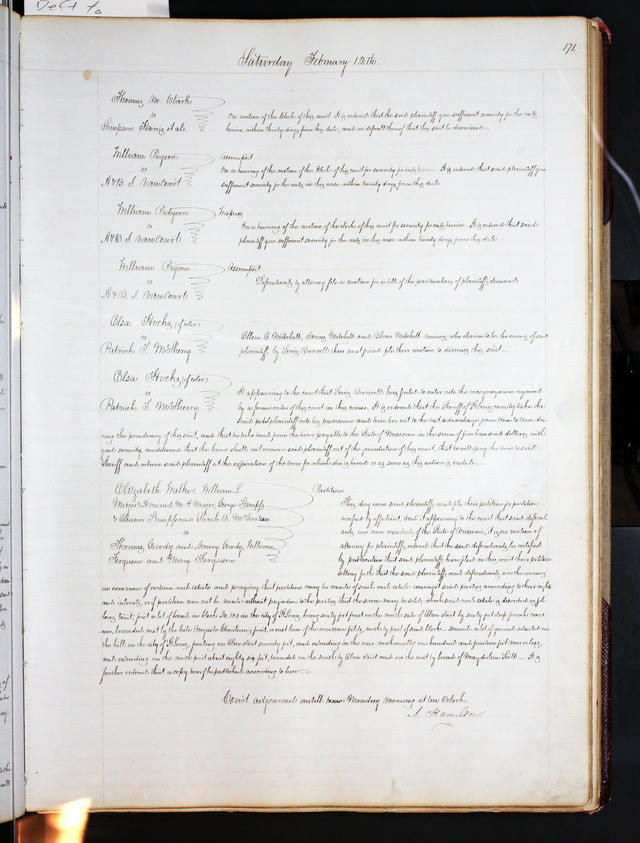 171.
Saturday February 12th.
Thomas M Clark
vs
Simpson Harris et als.
On motion of the Clerk of this court It is ordered that the said plaintiff give sufficient security for the costs
herein within thirty days from this date, and in default thereof that this suit be dismissed.
William Pigeon
vs
A & B. I. VanCourt
Assumpsit
On a hearing of the motion of the Clerk of this court for security for costs herein It is ordered that said plaintiff give
sufficient security for the costs in this case within twenty days from this date
William Pidgeon
vs
A & B. I. VanCourt
Trespass
On a hearing of the motion of the clerk of this court for security for costs herein It is ordered that said
plaintiff give sufficient security for the costs in this case within twenty days from this date
William Pigeon
vs
A & B. I. VanCourt
Assumpsit
Defendants by attorney file a motion for a bill of the particulars of plaintiffs demand
Elsa Hicks, (of color)
vs
Patrick T. McSherry
Ellen A Mitchell, Mitchell and Mitchell minors, who claim to be the owners of said
plaintiff, by Lewis Burwell their next friend file their motion to dismiss this suit
Elsa Hicks, (of color)
vs
Patrick T. McSherry
It appearing to the court that Lewis Burwell has failed to enter into the recognizance required
by a former order of this court in this cause. It is ordered that the Sheriff of St Louis county take the
said plaintiff into his possession and hire her out to the best advantage from time to time dur
ing the pendency of this suit, and that he take bond from the hirer payable to the State of Missouri in the sum of five hundred dollars, with
good security, conditioned that the hirer shall not remove said plaintiff out of the jurisdiction of this court, that he will pay the hire to said
Sheriff and return said plaintiff at the expiration of the term for which she is hired or as soon as this action is ended
Elizabeth Walker, William L.
George Kempff
& Eleanor Kempff and Sarah A. McCausland
vs
Thomas Grundy and Nancy Grundy, William
Ferguson and Mary Ferguson
Partition
This day come said plaintiffs and file their petition for partition
verified by affidavit, and it appearing to the court that said defend
ants are non residents of the State of Missouri, it is on motion of
attorney for plaintiffs, ordered that the said defendants, be notified
by publication that said plaintiffs have filed in this court their petition
setting forth that the said plaintiffs and defendants are the owners
in common of certain real estate and praying that partition may be made of said real estate amongst said parties according to their rights
and interests, or if partition can not be made without prejudice to the parties that the same may be sold, which said real estate is described as fol
lows, to wit: first a lot of land in block No 102 in the city of St Louis, being sixty feet front on the north side of Elm street by sixty feet deep
bounded east by the late Auguste Chouteau and by part of said block second a lot of ground situated on
the hill in the city of St Louis, fronting on Elm street seventy feet, and extending in the rear northwardly one hundred and feet more or less,
and extending on the north part about eighty six feet, bounded on the south by Elm street and on the east by land of It is
further ordered that a copy hereof be published according to law
Court adjourned untill Monday morning at ten Oclock.
A. Hamilton